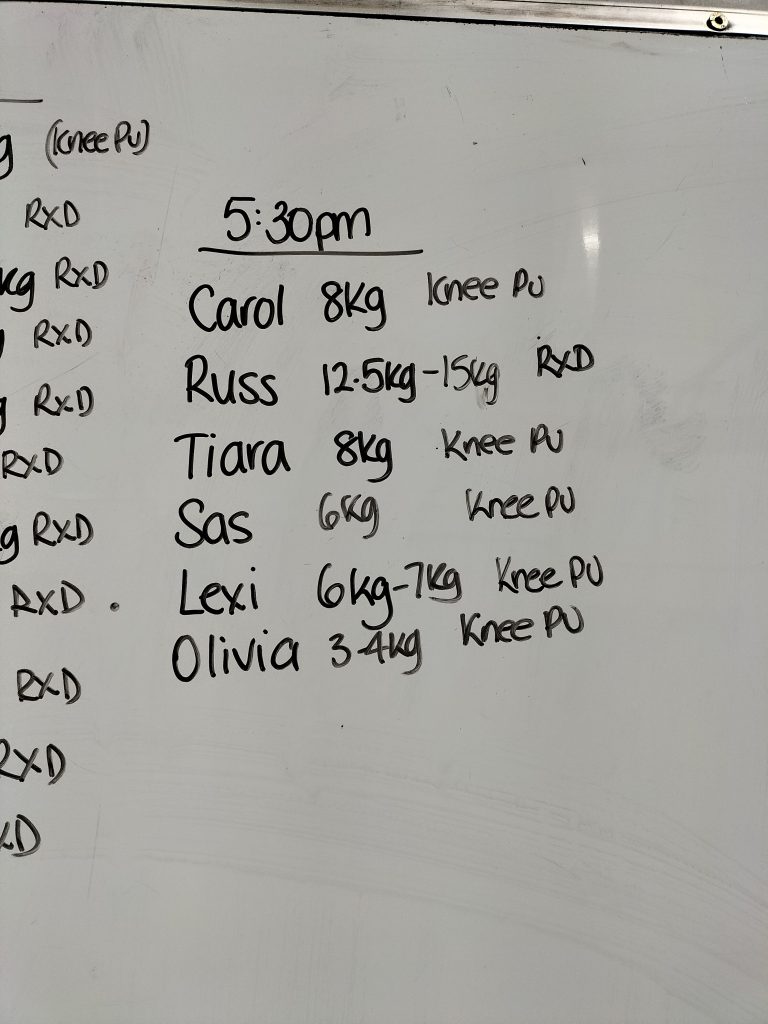 (Knee PU)
RXD
kg RXD
RXD
g RXD
RXD
g RXD
RXD .
RXD
RXD
XD
5:30pm
Carol 8kg Knee PU
Russ 12.5kg-15kg RXD
Tiara 8kg Knee PU
Sas 6kg Knee PU
Lexi 6kg-7kg Knee PU
Olivia 3-4kg Knee PU